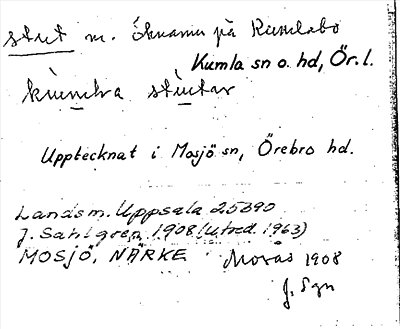 stut m. öknamn på Kumlabo
Kumla sn o. hd, Ör. l.
kumla stutar
Upptecknat i Mosjö sn, Örebro hd.
Landsm. Uppsala 25390
J. Sahlgren 1908 (utred. 1963)
MOSJÖ, NÄRKE Mosås 1908
J. Sgn